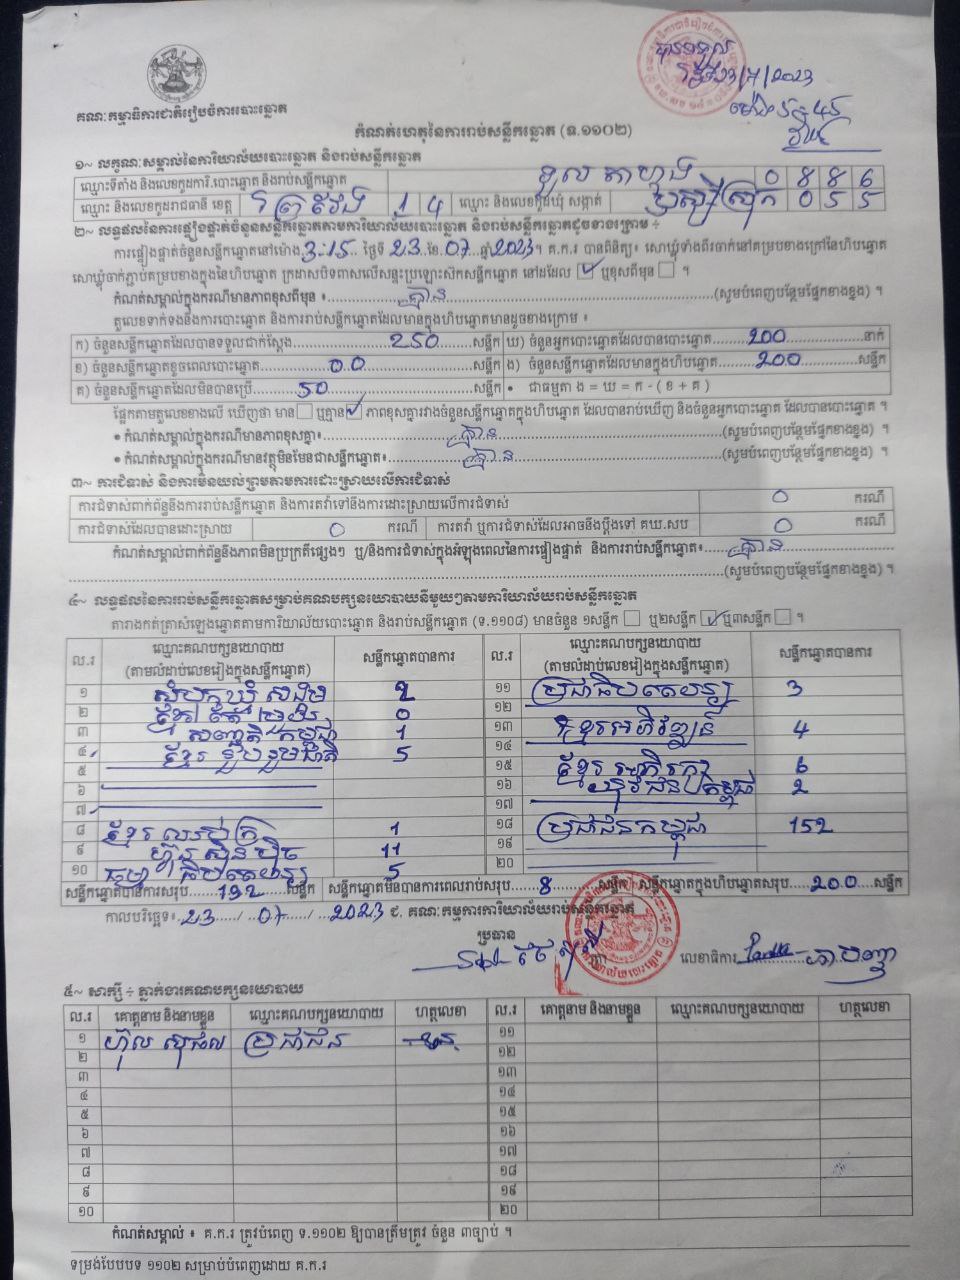 គណៈកម្មាធិការជាតិរៀបចំការបោះឆ្នោត
បានទទួល
ថ្ងៃទី23/7/2023
កំណត់ហេតុនៃការរាប់សន្លឹកឆ្នោត (ទ.១១០២)
១~ លក្ខណៈសម្គាល់នៃការិយាល័យបោះឆ្នោត និងរាប់សន្លឹកឆ្នោត
ឈ្មោះទីតាំង និងលេខកូដការិ.បោះឆ្នោត និងរាប់សន្លឹកឆ្នោត ទួលតាហ្គង 0 8 8 6
ឈ្មោះ និងលេខកូដរាជធានី ខេត្ត ព្រៃវែង 1 4 ឈ្មោះ និងលេខកូដឃុំ សង្កាត់ ឫស្សីស្រុក 0 5 5
២~ លទ្ធផលនៃការផ្ទៀងផ្ទាត់ចំនួនសន្លឹកឆ្នោតតាមការិយាល័យបោះឆ្នោត និងរាប់សន្លឹកឆ្នោតដូចខាងក្រោម ៖
ការផ្ទៀងផ្ទាត់ចំនួនសន្លឹកឆ្នោតនៅម៉ោង 3:15 ថ្ងៃទី 23 ខែ 07 ឆ្នាំ 2023 ។ គ.ក.រ បានពិនិត្យ៖ សោឃ្លុំទាំងពីរចាក់នៅគម្របខាងក្រៅនៃហិបឆ្នោត
សោឃ្លុំចាក់ភ្ជាប់គម្របខាងក្នុងនៃហិបឆ្នោត ក្រដាសបិទពាសលើសន្ទះប្រឡោះស៊កសន្លឹកឆ្នោត នៅដដែល ☑ ឬខុសពីមុន ☐ ។
កំណត់សម្គាល់ក្នុងករណីមានភាពខុសពីមុន ៖ គ្មាន (សូមបំពេញបន្ថែមផ្នែកខាងខ្នង) ។
តួលេខទាក់ទងនឹងការបោះឆ្នោត និងការរាប់សន្លឹកឆ្នោតដែលមានក្នុងហិបឆ្នោតមានដូចខាងក្រោម ៖
ក) ចំនួនសន្លឹកឆ្នោតដែលបានទទួលជាក់ស្តែង 250 សន្លឹក ឃ) ចំនួនអ្នកបោះឆ្នោតដែលបានបោះឆ្នោត 200 នាក់
ខ) ចំនួនសន្លឹកឆ្នោតខូចពេលបោះឆ្នោត 00 សន្លឹក ង) ចំនួនសន្លឹកឆ្នោតដែលមានក្នុងហិបឆ្នោត 200 សន្លឹក
គ) ចំនួនសន្លឹកឆ្នោតដែលមិនបានប្រើ 50 សន្លឹក • ជាធម្មតា ង = ឃ = ក - ( ខ + គ )
ផ្អែកតាមតួលេខខាងលើ ឃើញថា មាន ☐ ឬគ្មាន ☑ ភាពខុសគ្នារវាងចំនួនសន្លឹកឆ្នោតក្នុងហិបឆ្នោត ដែលបានរាប់ឃើញ និងចំនួនអ្នកបោះឆ្នោត ដែលបានបោះឆ្នោត ។
• កំណត់សម្គាល់ក្នុងករណីមានភាពខុសគ្នា៖ គ្មាន (សូមបំពេញបន្ថែមផ្នែកខាងខ្នង) ។
• កំណត់សម្គាល់ក្នុងករណីមានវត្ថុមិនមែនជាសន្លឹកឆ្នោត៖ គ្មាន (សូមបំពេញបន្ថែមផ្នែកខាងខ្នង) ។
៣~ ការជំទាស់ និងការមិនយល់ព្រមតាមការដោះស្រាយលើការជំទាស់
ការជំទាស់ពាក់ព័ន្ធនឹងការរាប់សន្លឹកឆ្នោត និងការតវ៉ាទៅនឹងការដោះស្រាយលើការជំទាស់ 0 ករណី
ការជំទាស់ដែលបានដោះស្រាយ 0 ករណី ការតវ៉ា ឬការជំទាស់ដែលអាចនឹងប្តឹងទៅ គឃ.សប 0 ករណី
កំណត់សម្គាល់ពាក់ព័ន្ធនឹងភាពមិនប្រក្រតីផ្សេងៗ ឬ/និងការជំទាស់ក្នុងអំឡុងពេលនៃការផ្ទៀងផ្ទាត់ និងការរាប់សន្លឹកឆ្នោត៖ គ្មាន
(សូមបំពេញបន្ថែមផ្នែកខាងខ្នង) ។
៤~ លទ្ធផលនៃការរាប់សន្លឹកឆ្នោតសម្រាប់គណបក្សនយោបាយនីមួយៗតាមការិយាល័យរាប់សន្លឹកឆ្នោត
តារាងកត់ត្រាសំឡេងឆ្នោតតាមការិយាល័យបោះឆ្នោត និងរាប់សន្លឹកឆ្នោត (ទ.១១០៨) មានចំនួន ១សន្លឹក ☐ ឬ២សន្លឹក ☑ ឬ៣សន្លឹក ☐ ។
ល.រ ឈ្មោះគណបក្សនយោបាយ (តាមលំដាប់លេខរៀងក្នុងសន្លឹកឆ្នោត) សន្លឹកឆ្នោតបានការ ល.រ ឈ្មោះគណបក្សនយោបាយ (តាមលំដាប់លេខរៀងក្នុងសន្លឹកឆ្នោត) សន្លឹកឆ្នោតបានការ
១ សំបុកឃ្មុំសង្គម 2 ១១ ប្រជាធិបតេយ្យ 3
២ ខ្មែរតែមួយ 0 ១២
៣ សញ្ជាតិកម្ពុជា 1 ១៣ ខ្មែរអភិវឌ្ឍន៍ 4
៤ ខ្មែររួបរួមជាតិ 5 ១៤
៥ ១៥ ខ្មែរ 6
៦ ១៦ យុវជនកម្ពុជា 2
៧ ១៧
៨ ខ្មែរ 1 ១៨ ប្រជាជនកម្ពុជា 152
៩ ហ៊្វុនស៊ិនប៉ិច 11 ១៩
១០ ធិបតេយ្យ 5 ២០
សន្លឹកឆ្នោតបានការសរុប 192 សន្លឹក សន្លឹកឆ្នោតមិនបានការពេលរាប់សរុប 8 សន្លឹក សន្លឹកឆ្នោតក្នុងហិបឆ្នោតសរុប 200 សន្លឹក
កាលបរិច្ឆេទ៖ 23 / 07 / 2023 ៩. គណៈកម្មការការិយាល័យរាប់សន្លឹកឆ្នោត
ប្រធាន
លេខាធិការ
៥~ សាក្សី ÷ ភ្នាក់ងារគណបក្សនយោបាយ
ល.រ គោត្តនាម និងនាមខ្លួន ឈ្មោះគណបក្សនយោបាយ ហត្ថលេខា ល.រ គោត្តនាម និងនាមខ្លួន ឈ្មោះគណបក្សនយោបាយ ហត្ថលេខា
១ ហ៊ុល សុផល ប្រជាជន ១១
២ ១២
៣ ១៣
៤ ១៤
៥ ១៥
៦ ១៦
៧ ១៧
៨ ១៨
៩ ១៩
១០ ២០
កំណត់សម្គាល់ ៖ គ.ក.រ ត្រូវបំពេញ ទ.១១០២ ឱ្យបានត្រឹមត្រូវ ចំនួន ៣ច្បាប់ ។
ទម្រង់បែបបទ ១១០២ សម្រាប់បំពេញដោយ គ.ក.រ